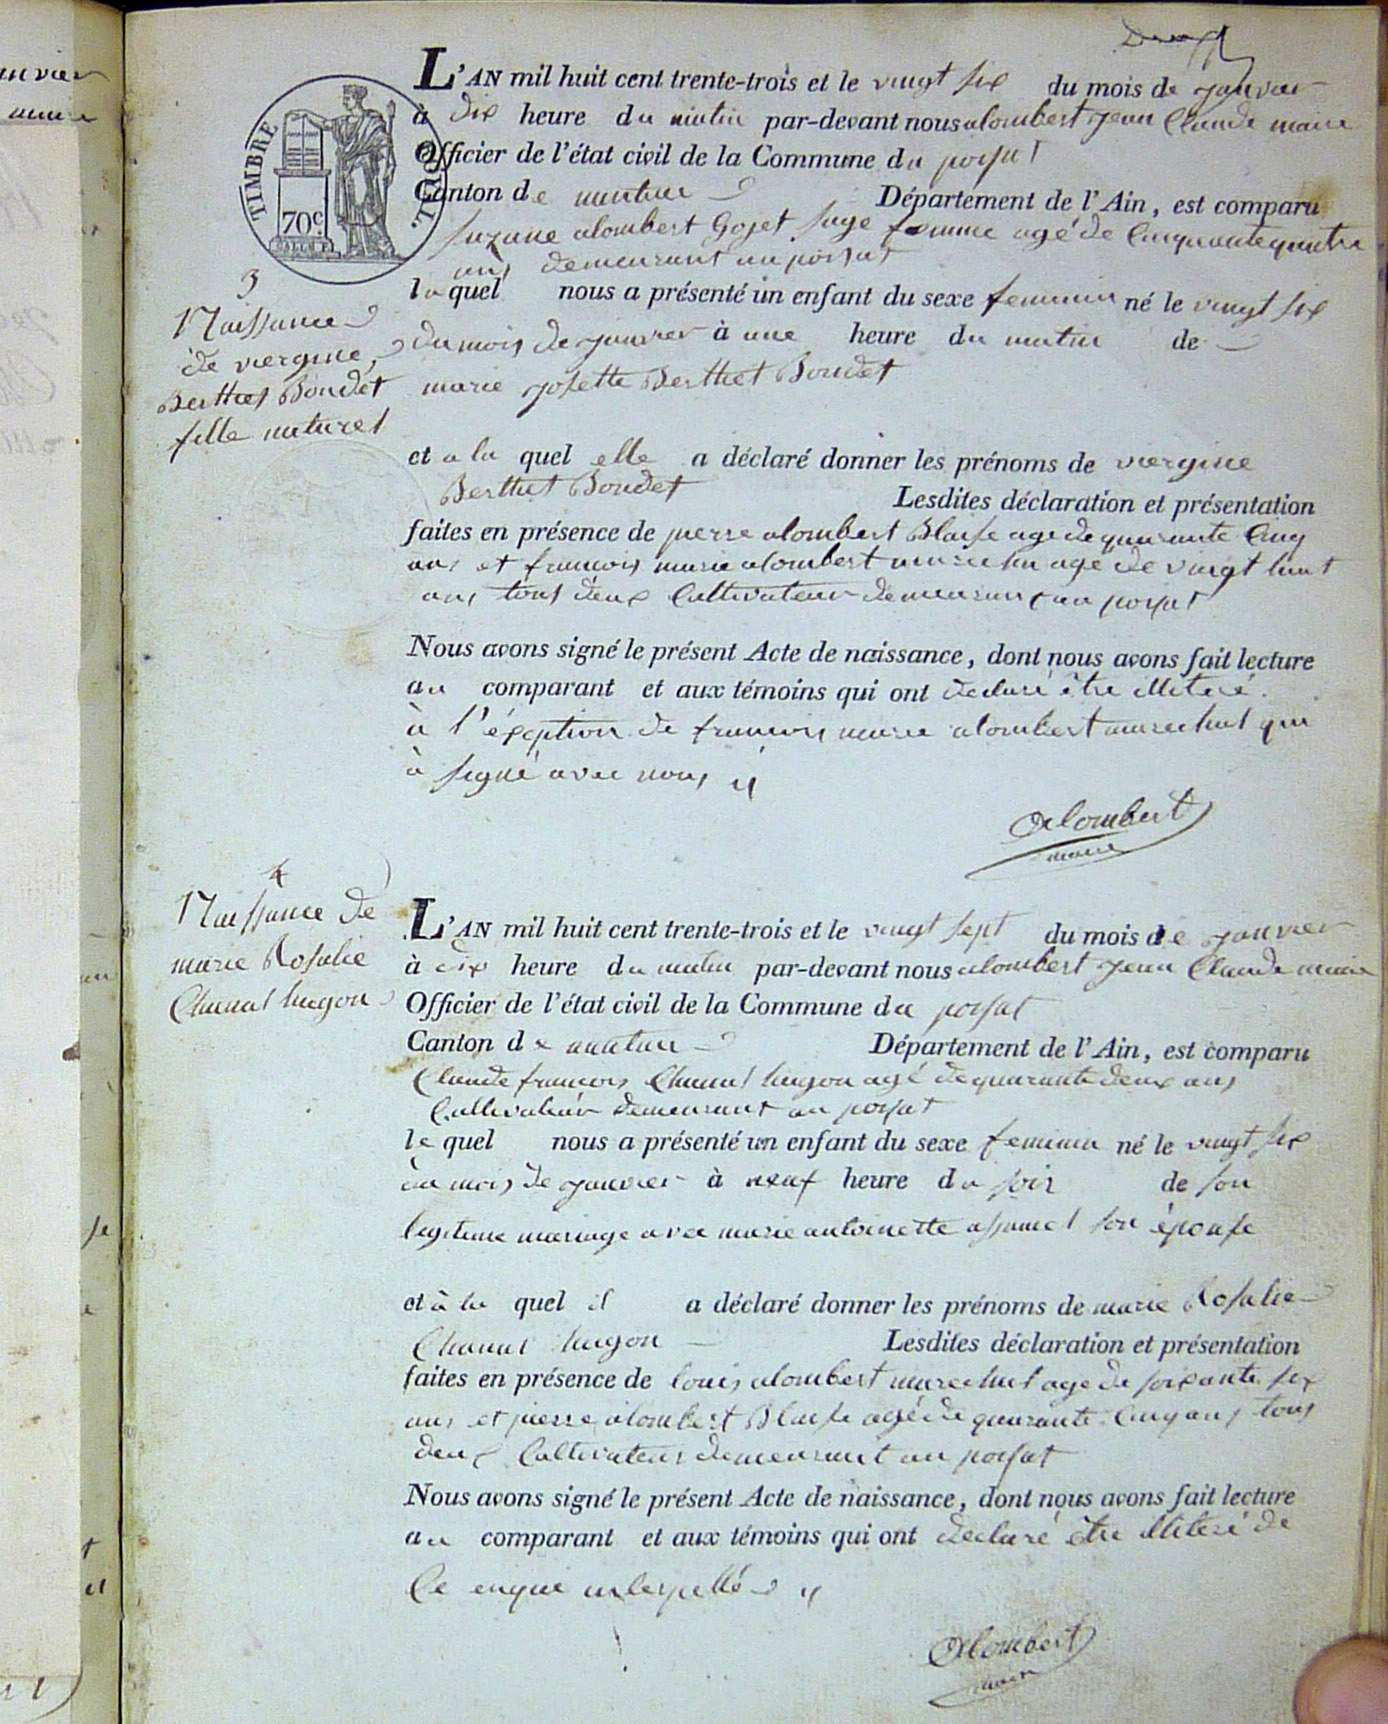 Deux
L'AN mil huit cent trente-trois et le vingt six du mois de janvier
à dix heure du matin par-devant nous alombert jean Claude maire
Officier de l'état civil de la Commune du poisat
Canton de nantua Département de l'Ain, est comparu
suzane alombert Gojet sage femme agé de Cinquante quatre
ans demeurant au poisat
TIMBRE ROYAL
70c
la quel nous a présenté un enfant du sexe feminin né le vingt six
du mois de janvier à une heure du matin de
marie josette Berthet Boudet
3
Naissance
de viergine
Berthet Boudet
fille naturel
et a la quel elle a déclaré donner les prénoms de viergine
Berthet Boudet Lesdites déclaration et présentation
faites en présence de pierre alombert Blaise age de quarante Cinq
ans et francois marie alombert marechal age de vingt huit
ans tous deux Cultivateur demeurant au poisat
Nous avons signé le présent Acte de naissance, dont nous avons fait lecture
au comparant et aux témoins qui ont declaré être illiteré
à l'éxeption de francois marie alombert marechal qui
à signé avec nous
Alombert
maire
4
Naissance de
marie Rosalie
Chanal hugon
L'AN mil huit cent trente-trois et le vingt sept du mois de janvier
à dix heure du matin par-devant nous alombert jean Claude maire
Officier de l'état civil de la Commune du poisat
Canton de nantua Département de l'Ain, est comparu
Claude francois Chanal hugon agé de quarante deux ans
Cultivateur demeurant au poisat
le quel nous a présenté un enfant du sexe feminin né le vingt six
du mois de janvier à neuf heure du soir de son
legitime mariage avec marie antoinette son épouse
et à la quel il a déclaré donner les prénoms de marie Rosalie
Chanal hugon Lesdites déclaration et présentation
faites en présence de louis alombert marechal age de soixante six
ans et pierre alombert Blaise agé de quarante Cinq ans tous
deux Cultivateur demeurant au poisat
Nous avons signé le présent Acte de naissance, dont nous avons fait lecture
au comparant et aux témoins qui ont declaré être illiteré de
Ce enquis interpellé
Alombert
maire